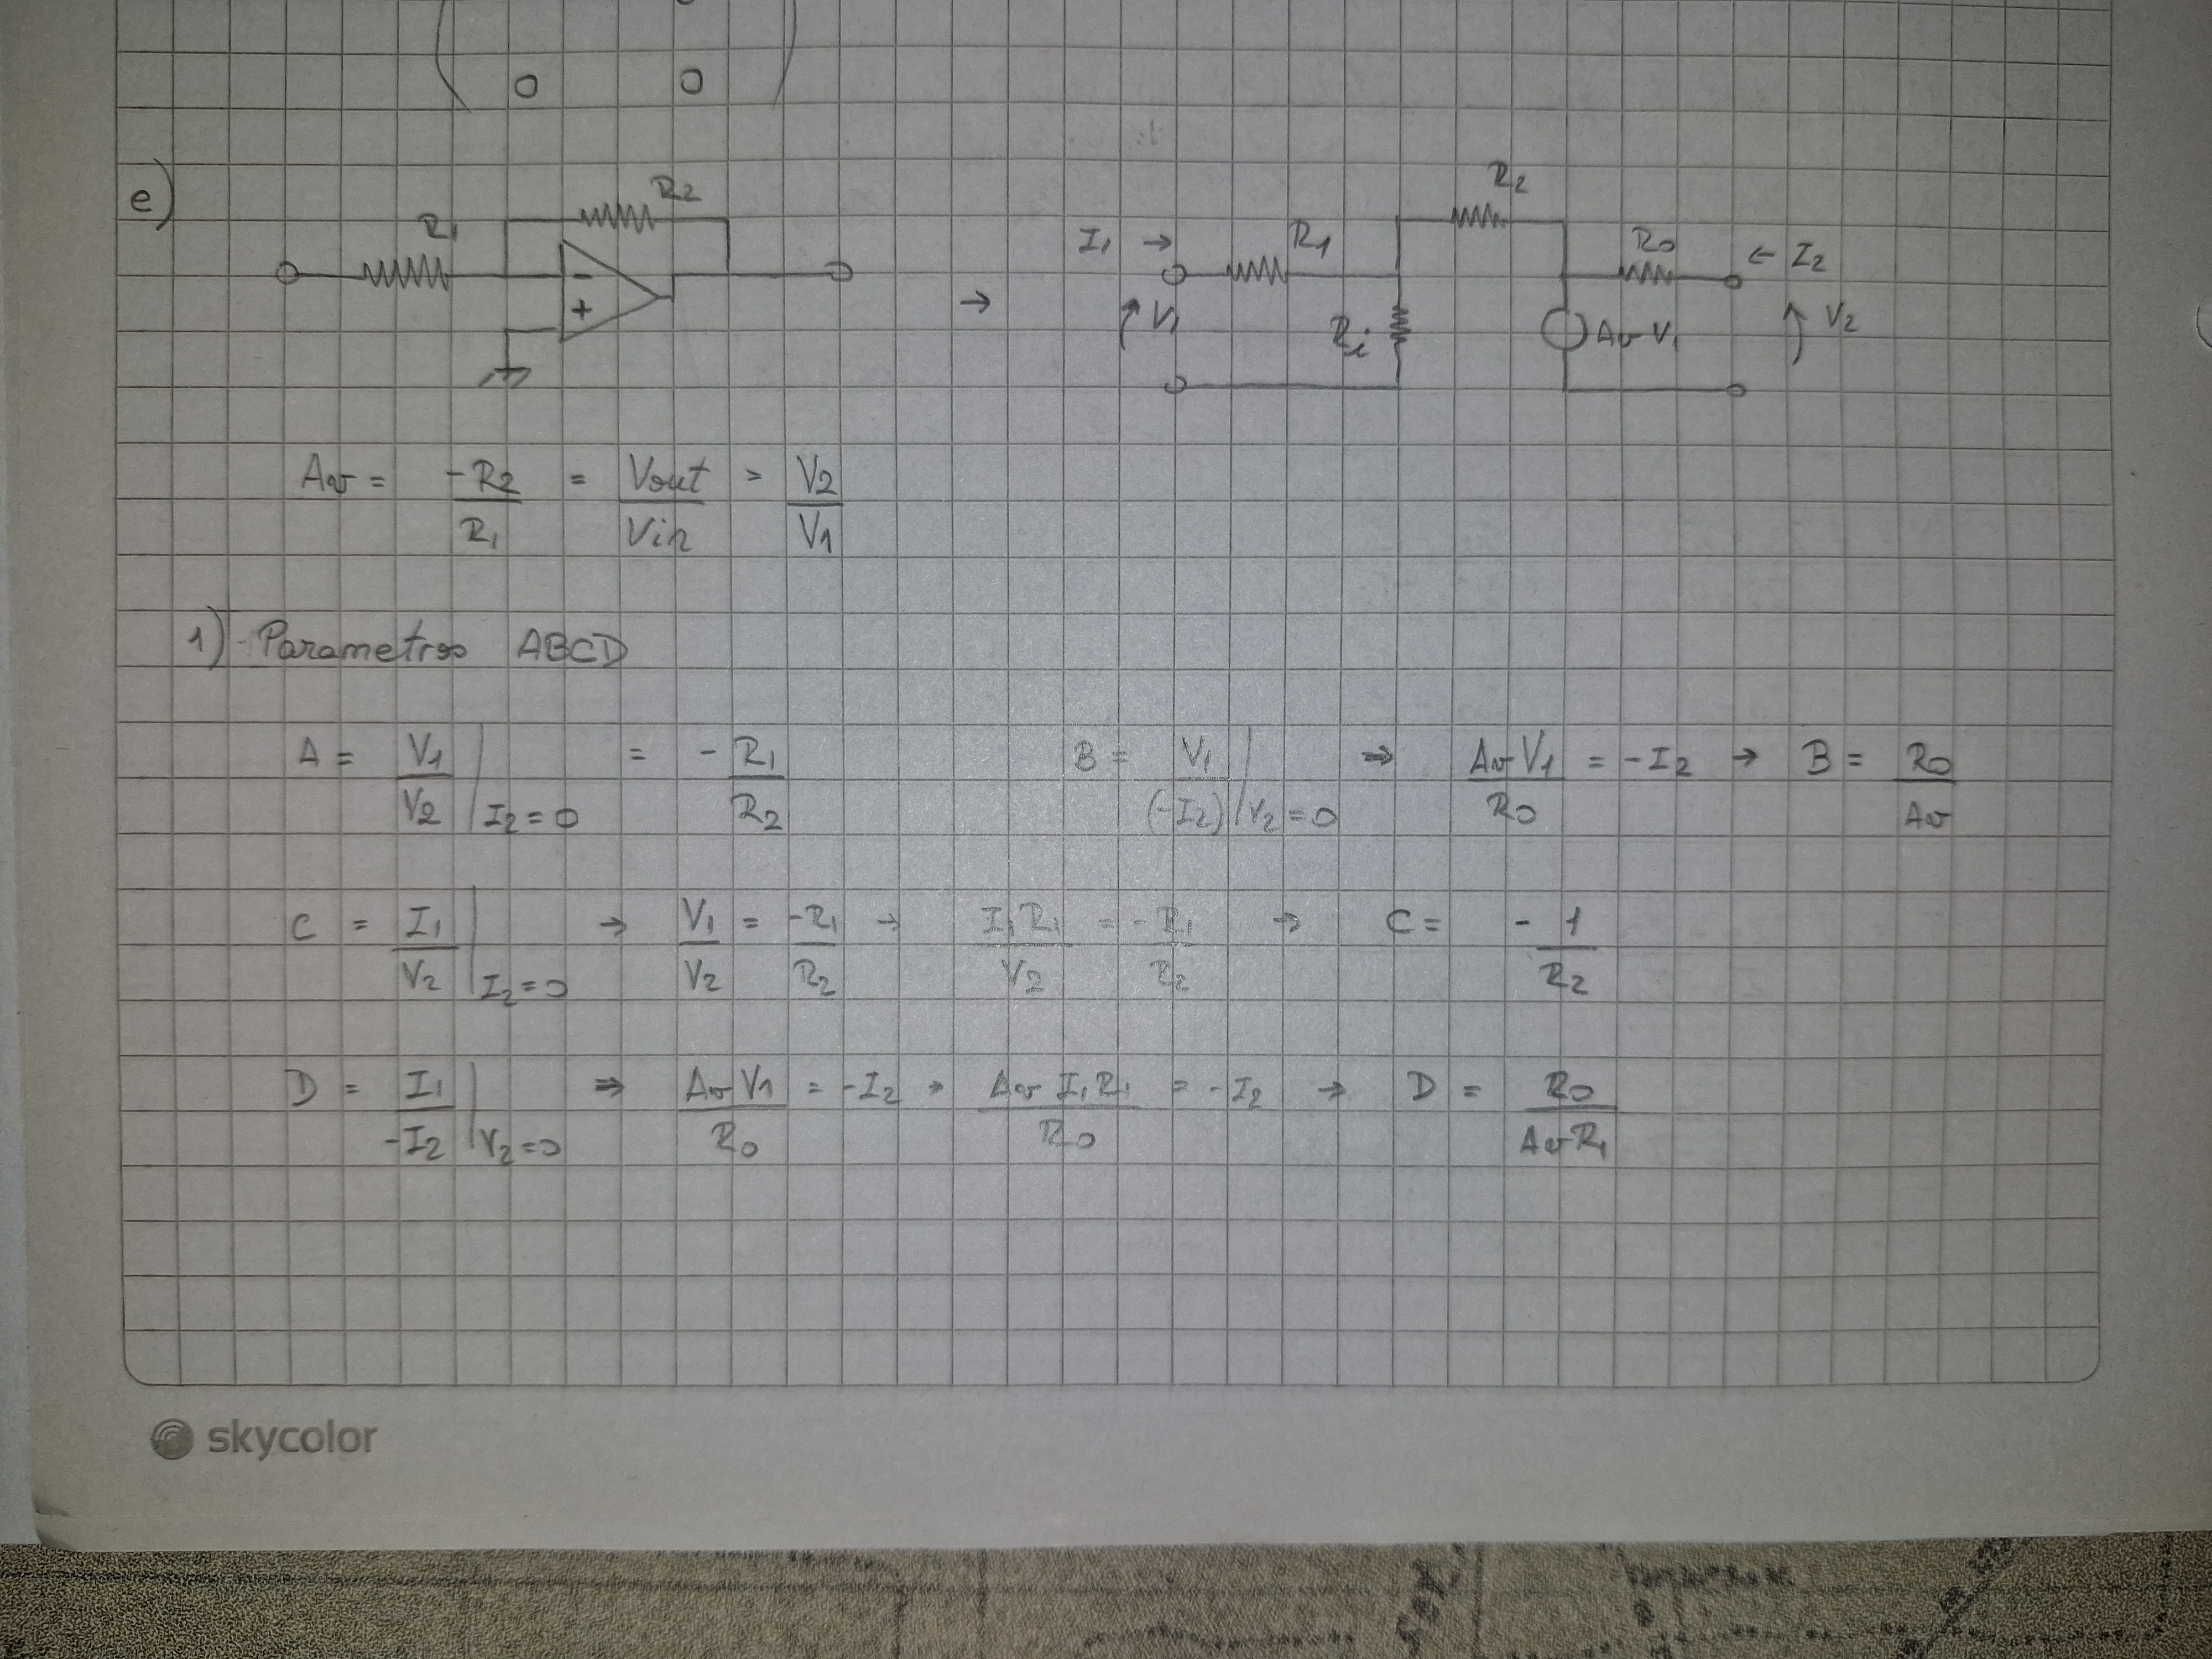 0 0
e)
R1 R2 - +
I1 → R1 R2 R0 ← I2
→ V1 Ri Av V1 V2
Av = -R2/R1 = Vout/Vin = V2/V1
1) Parametros ABCD
A = V1/V2 | I2=0 = - R1/R2 B = V1/(-I2) | V2=0 ⇒ Av V1/R0 = -I2 → B = R0/Av
C = I1/V2 | I2=0 → V1/V2 = -R1/R2 → I1 R1/V2 = - R1/R2 → C = - 1/R2
D = I1/-I2 | V2=0 ⇒ Av V1/R0 = -I2 → Av I1 R1/R0 = -I2 → D = R0/Av R1
skycolor